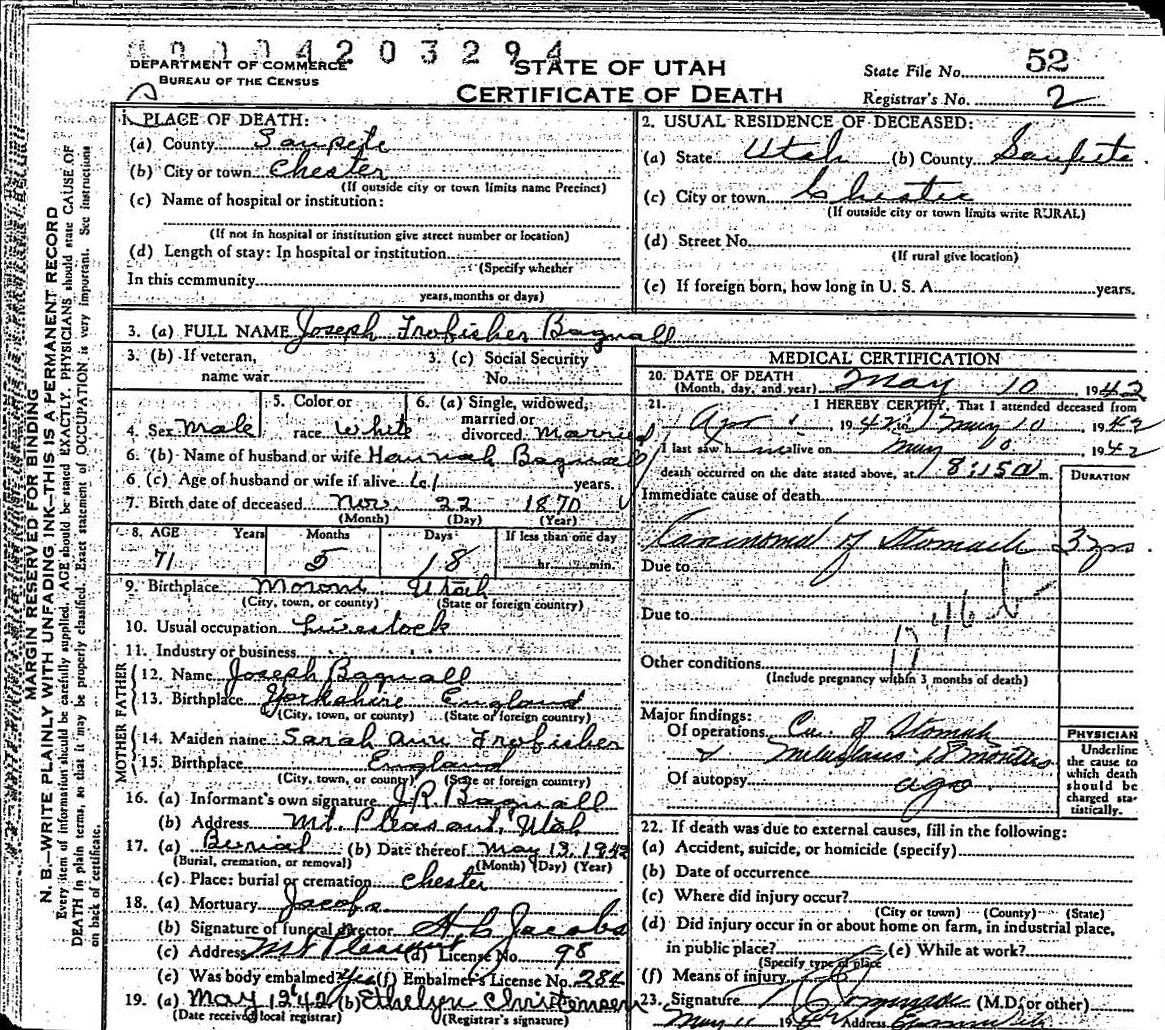 00004203294
DEPARTMENT OF COMMERCE
BUREAU OF THE CENSUS
STATE OF UTAH
CERTIFICATE OF DEATH
State File No. 52
Registrar's No. 2
MARGIN RESERVED FOR BINDING
N. B.—WRITE PLAINLY WITH UNFADING INK—THIS IS A PERMANENT RECORD
Every item of information should be carefully supplied. AGE should be stated EXACTLY. PHYSICIANS should state CAUSE OF
DEATH in plain terms, so that it may be properly classified. Exact statement of OCCUPATION is very important. See instructions
on back of certificate.
1. PLACE OF DEATH:
(a) County Sanpete
(b) City or town Chester
(If outside city or town limits name Precinct)
(c) Name of hospital or institution:
(If not in hospital or institution give street number or location)
(d) Length of stay: In hospital or institution
(Specify whether
In this community
years, months or days)
2. USUAL RESIDENCE OF DECEASED:
(a) State Utah (b) County Sanpete
(c) City or town Chester
(If outside city or town limits write RURAL)
(d) Street No.
(If rural give location)
(e) If foreign born, how long in U. S. A. years.
3. (a) FULL NAME Joseph Frofisher Bagnall
3. (b) If veteran, name war
3. (c) Social Security No.
4. Sex Male
5. Color or race White
6. (a) Single, widowed, married or divorced Married
6. (b) Name of husband or wife Hannah Bagnall
6. (c) Age of husband or wife if alive 61 years.
7. Birth date of deceased Nov. 22 1870
(Month) (Day) (Year)
8. AGE Years Months Days If less than one day
71 5 18 hr. min.
9. Birthplace Moroni Utah
(City, town, or county) (State or foreign country)
10. Usual occupation Livestock
11. Industry or business
FATHER
12. Name Joseph Bagnall
13. Birthplace Yorkshire England
(City, town, or county) (State or foreign country)
MOTHER
14. Maiden name Sarah Ann Frofisher
15. Birthplace England
(City, town, or county) (State or foreign country)
16. (a) Informant's own signature J.R. Bagnall
(b) Address Mt. Pleasant, Utah
17. (a) Burial (b) Date thereof May 13, 1942
(Burial, cremation, or removal) (Month) (Day) (Year)
(c) Place: burial or cremation Chester
18. (a) Mortuary Jacobs
(b) Signature of funeral director A C Jacobs
(c) Address Mt Pleasant (d) License No. 98
(e) Was body embalmed? Yes (f) Embalmer's License No. 284
19. (a) May 12 '42 (b) Ethelyn Christensen
(Date received local registrar) (Registrar's signature)
MEDICAL CERTIFICATION
20. DATE OF DEATH
(Month, day, and year) May 10 1942
21. I HEREBY CERTIFY, That I attended deceased from
Apr 1, 1942 to May 10, 1942
I last saw him alive on May 10 1942
death occurred on the date stated above, at 8:15 a m.
DURATION
Immediate cause of death
Carcinoma of Stomach 3 yrs
Due to
46 b
Due to
Other conditions
(Include pregnancy within 3 months of death)
Major findings:
Of operations Ca. of Stomach
& 18 months
Of autopsy ago
PHYSICIAN
Underline
the cause to
which death
should be
charged sta-
tistically.
22. If death was due to external causes, fill in the following:
(a) Accident, suicide, or homicide (specify)
(b) Date of occurrence
(c) Where did injury occur?
(City or town) (County) (State)
(d) Did injury occur in or about home on farm, in industrial place,
in public place? (e) While at work?
(Specify type of place
(f) Means of injury
23. Signature (M.D. or other)
May 11 194 Address